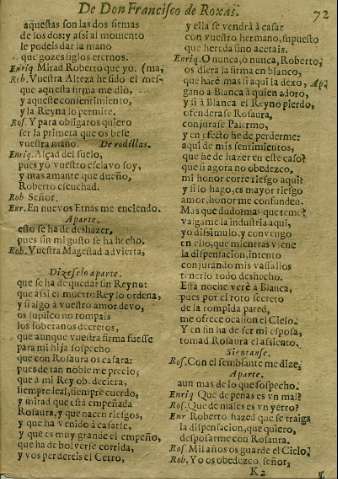 De Don Francisco de Roxas.
72
aquestas son las dos firmas
de los dos; y assi al momento
le podeis dar la mano
que gozeis siglos eternos.
Enriq. Mirad Roberto que yo. (ma,
Rob. Vuestra Alteza he sido el mes-
que aquesta firma me dio,
y aqueste consentimiento,
y la Reyna lo permite,
Ros. Y para obligaros quiero
ser la primera que os bese
vuestra mano. De rodillas.
Enriq. Alçad del suelo,
pues yo vuestro esclavo soy,
y mas amante que dueño,
Roberto escuchad.
Rob. Señor.
Enr. En nuevos Etnas me enciendo.
Aparte.
esto se ha de deshazer,
pues sin mi gusto se ha hecho.
Rob. Vuestra Magestad advierta,
Dizeselo aparte.
que se ha de quedar sin Reyno:
que assi el muerto Rey lo ordena,
y si algo a vuestro amor devo,
os suplico no rompais
los soberanos decretos,
que aunque vuestra firma fuesse
para mi hija sospecho
que con Rosaura os casara:
pues de tan noble me precio,
que a mi Rey obedeciera,
siempre leal, siempre cuerdo,
y mirad que està empeñada
Rosaura, y que nacen riesgos,
y que ha venido à casarse,
y que es muy grande el empeño,
que ha de bolverse corrida,
y vos perdereis el Cetro,
y ella se vendrà à casar
con vuestro hermano, supuesto
que herida sino acetais.
Enriq. O nunca, ò nunca, Roberto,
os diera la firma en blanco,
que hare mas si aqui la dexo, Ap.
gano a Blanca à quien adoro,
y si à Blanca el Reyno pierdo,
ofenderase Rosaura,
conjurase Palermo,
y en efecto he de perderme:
aqui de mis sentimientos,
que he de hazer en este caso?
que si agora no obedezco,
mi honor corre riesgo aqui:
y si lo hago, es mayor riesgo
amor, honor me confunden.
Mas que dudo mas que temo?
valgame la industria aqui,
yo disimulo, y convengo
en ello, que mientras viene
la dispensacion, intento
conjurando mis vassallos
tenerlo todo deshecho.
Esta noche verè à Blanca,
pues por el roto secreto
de la rompida pared,
me ofrece ocasion el Cielo.
Y en fin ha de ser mi esposa,
tomad Rosaura el assiento.
Sientanse.
Ros. Con el semblante me dize,
Aparte.
aun mas de lo que sospecho.
Enriq. Que de penas es vn mal?
Ros. Que de males es vn yerro?
Enr. Roberto hazed que se traiga
la dispensacion, que quiero,
desposarme con Rosaura.
Ros. Mil años os guarde el Cielo.
Rob. Yo os obedezco, señor,
K2